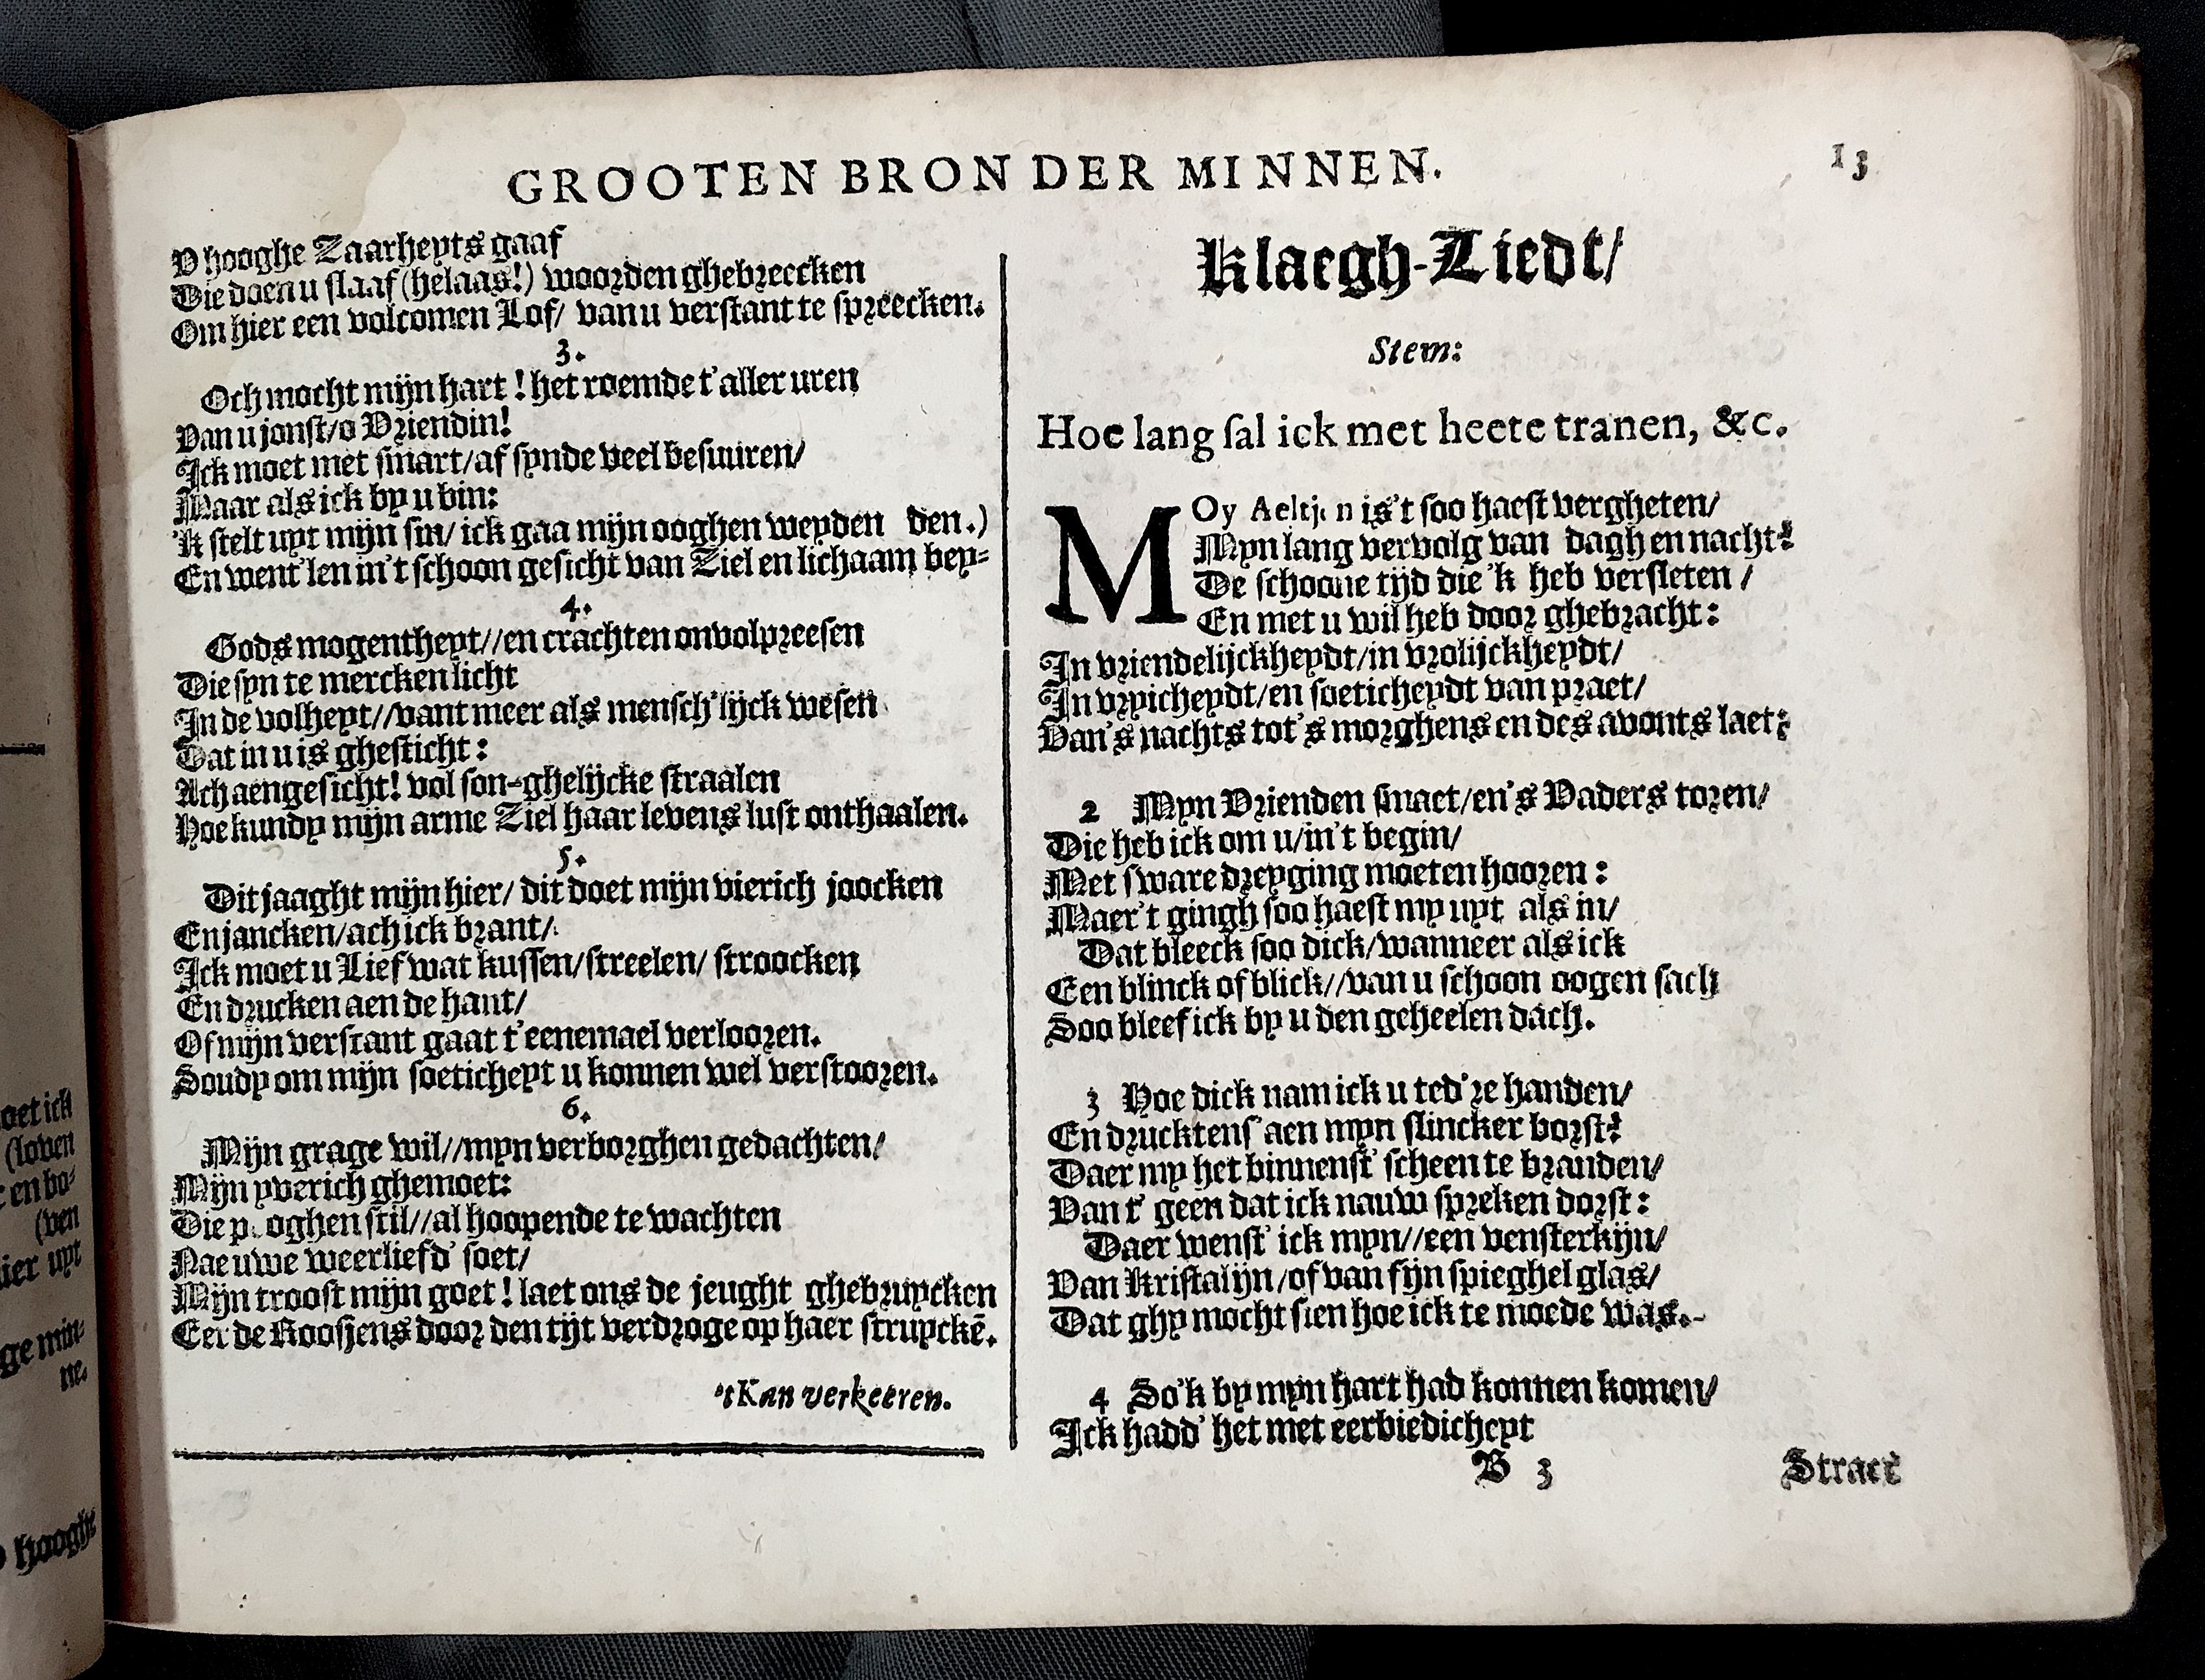 GROOTEN BRON DER MINNEN.
13
V hooghe Zaarheyts gaaf
Die doen u slaaf (helaas!) woorden ghebreecken
Om hier een volcomen Lof/ van u verstant te spreecken.
3.
Och mocht mijn hart ! het roemde t'aller uren
Van u jonst/o Vriendin!
Ick moet met smart/af synde veel besuuren/
Maar als ick by u bin:
'K stelt uyt mijn sin/ ick gaa mijn ooghen weyden den.)
En went'len in't schoon gesicht van Ziel en lichaam bey-
4.
Gods mogentheyt//en crachten onvolpreesen
Die syn te mercken licht
In de volheyt//vant meer als mensch'lijck wesen
Dat in u is ghesticht :
Ach aengesicht! vol son-ghelijcke straalen
Hoe kundy mijn arme Ziel haar levens lust onthaalen.
5.
Dit jaaght mijn hier/ dit doet mijn vierich joocken
En jancken/ach ick brant/
Ick moet u Lief wat kussen/streelen/ stroocken
En drucken aen de hant/
Of mijn verstant gaat t'eenemael verlooren.
Soudy om mijn soeticheyt u konnen wel verstooren.
6.
Mijn grage wil//myn verborghen gedachten/
Mijn yverich ghemoet:
Die p oghen stil//al hoopende te wachten
Nae uwe weerliefd' soet/
Mijn troost mijn goet ! laet ons de jeught ghebruycken
Eer de Roosjens door den tijt verdroge op haer struyckē.
'tKan verkeeren.
Klaegh-Liedt/
Stem:
Hoe lang sal ick met heete tranen, &c.
MOy Aeltj n is't soo haest vergheten/
Myn lang vervolg van dagh en nacht:
De schoone tijd die 'k heb versleten /
En met u wil heb door ghebracht :
In vriendelijckheydt/in vrolijckheydt/
In vryicheydt/en soeticheydt van praet/
Van's nachts tot's morghens en des avonts laet:
2 Myn Vrienden smaet/en's Vaders toren/
Die heb ick om u/in't begin/
Met sware dreyging moeten hooren :
Maer't gingh soo haest my uyt als in/
Dat bleeck soo dick/wanneer als ick
Een blinck of blick//van u schoon oogen sach
Soo bleef ick by u den geheelen dach.
3 Hoe dick nam ick u ted're handen/
En drucktens' aen myn slincker borst:
Daer my het binnenst' scheen te branden/
Van t' geen dat ick nauw spreken dorst :
Daer wenst' ick myn//een vensterkijn/
Van Kristalijn/of van fijn spieghel glas/
Dat ghy mocht sien hoe ick te moede was.
4 So'k by myn hart had konnen komen/
Ick hadd' het met eerbiedicheyt
B 3
Stract
oet ick
(loven
en bo-
(ven
ier uyt
ge min-
ne.
hooghe